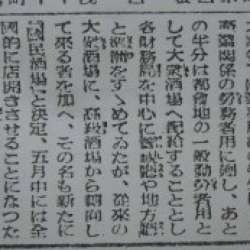 商業関係の労務者用に廻し、あと
の半分は都會地の一般勤労者用と
して大衆酒場へ配給することとし
各財務局を中心に警視廳や地方廳
と準備をすゝめてゐたが、從來の
大衆酒場に、高級酒場から轉向し
て來る者を加へ、その名も新たに
「國民酒場」と決定、五月中には全
國的に店開きさせることになつた